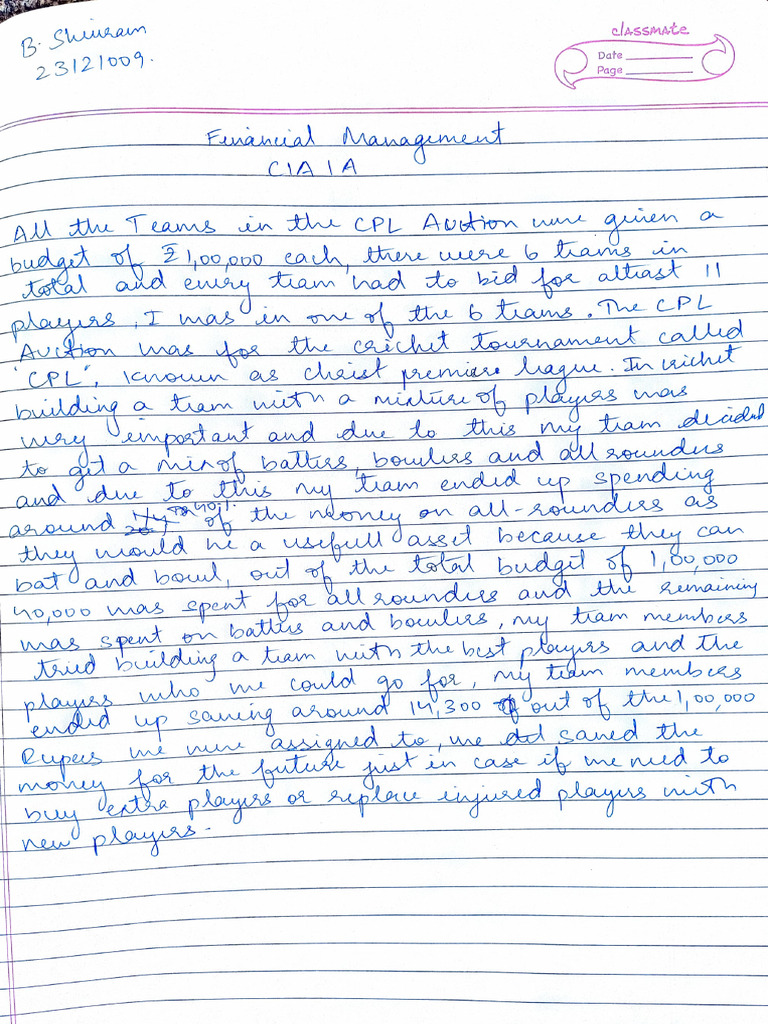 B. Shivram
23121009.
classmate
Date
Page
Financial Management
CIA 1 A
All the Teams in the CPL Auction were given a
budget of ₹1,00,000 each, there were 6 teams in
total and every team had to bid for atleast 11
players, I was in one of the 6 teams. The CPL
Auction was for the cricket tournament called
"CPL", known as christ premiere league. In cricket
building a team with a mixture of players was
very important and due to this my team decided
to get a mix of batters, bowlers and all rounders
and due to this my team ended up spending
around 40% of the money on all-rounders as
they would be a usefull asset because they can
bat and bowl, out of the total budget of 1,00,000
40,000 was spent for all rounders and the remaining
was spent on batters and bowlers, my team members
tried building a team with the best players and the
players who we could go for, my team members
ended up saving around 14,300 out of the 1,00,000
Rupees we were assigned to, we saved the
money for the future just in case if we need to
buy extra players or replace injured players with
new players.